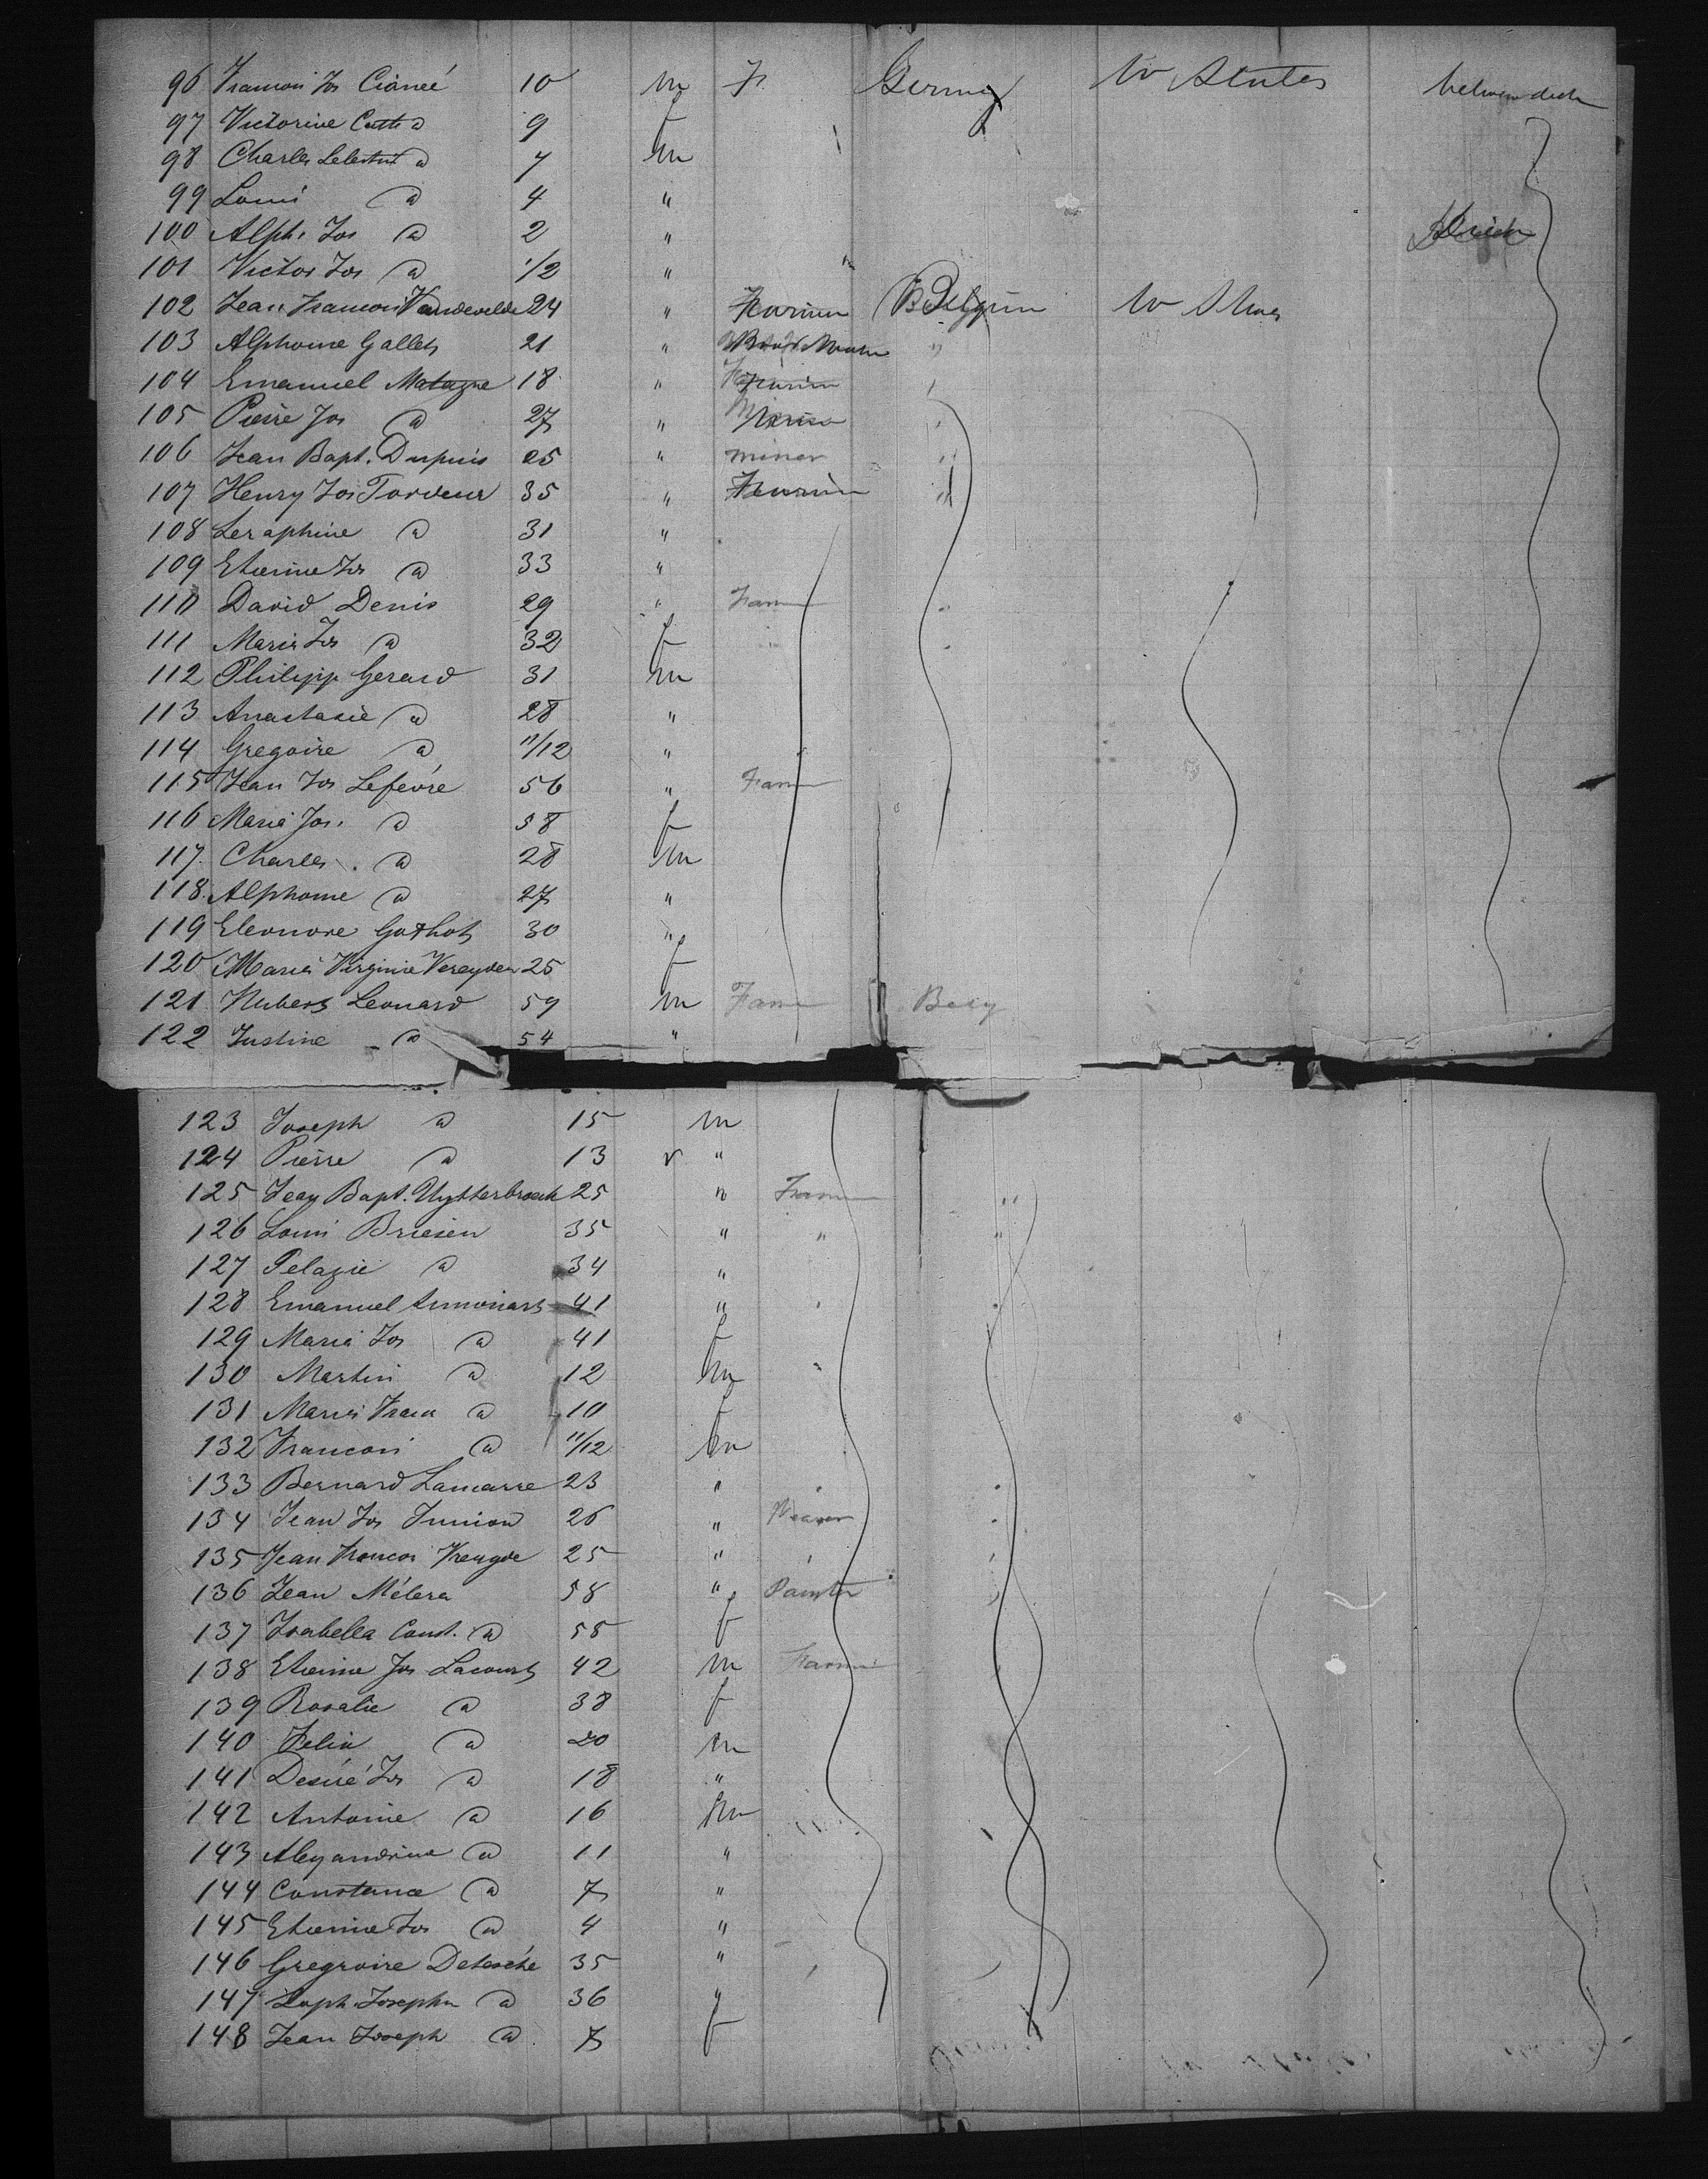 96 Francois Jos Cianeé 10 m F. Germany W States between deck
97 Victorine Cath do 9 f
98 Charles Celestin do 7 m
99 Louis do 4 "
100 Alph. Jos do 2 "
101 Victor Jos do 1/2 "
102 Jean Francois Vandevelde 24 " Farmer Belgium W States
103 Alphonse Gallet 21 " "
104 Emanuel Matagne 18 " Farmer "
105 Pierre Jos do 27 "
106 Jean Bapt. Dupuis 25 " miner "
107 Henry Jos Tordeur 35 " Farmer "
108 Seraphine do 31 "
109 Etienne Jos do 33 "
110 David Denis 29 " Farm "
111 Marie Jos do 32 f "
112 Philipp Gerard 31 m
113 Anastasie do 28 "
114 Gregoire do 11/12 "
115 Jean Jos Lefevre 56 " Farm
116 Marie Jos. do 58 f
117. Charles do 28 m
118. Alphonse do 27 "
119 Eleonore Gothot 30 "
120 Marie Virginie Vereyden 25 f
121 Hubert Leonard 59 m Farm Belg
122 Justine do 54 "
123 Joseph do 15 m
124 Pierre do 13 "
125 Jean Bapt. Uytterbroeck 25 " Farm "
126 Louis Briesen 35 " " "
127 Pelagie do 34 "
128 Emanuel 41 "
129 Maria Jos do 41 f
130 Martin do 12 m "
131 Marie Fran do 10 f
132 Francois do 11/12 m
133 Bernard Lamarre 23 " "
134 Jean Jos Junion 26 " Weaver "
135 Jean Francois 25 " "
136 Jean Mélera 58 " Painter "
137 Isabella Const. do 55 f
138 Etienne Jos Lacourt 42 m Farmer
139 Rosalie do 38 f
140 Felix do 20 m
141 Desiré Jos do 18 "
142 Antoine do 16 m
143 Alexandrine do 11 "
144 Constance do 7 "
145 Etienne Jos do 4 "
146 Gregroire Detesché 35 "
147 Josephe do 36 "
148 Jean Joseph do 7 f